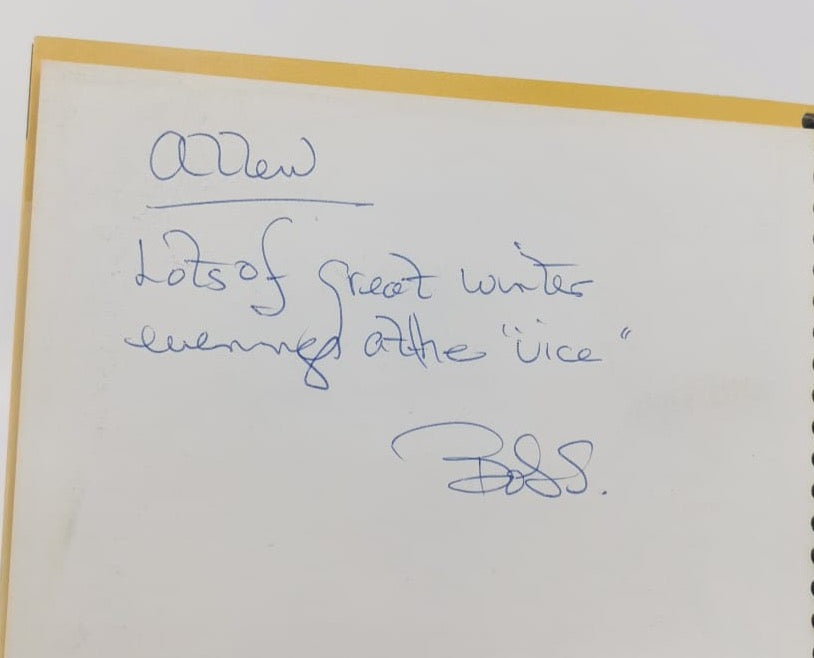 Allen
Lots of great winter
evenings at the "Vice"
Boss.